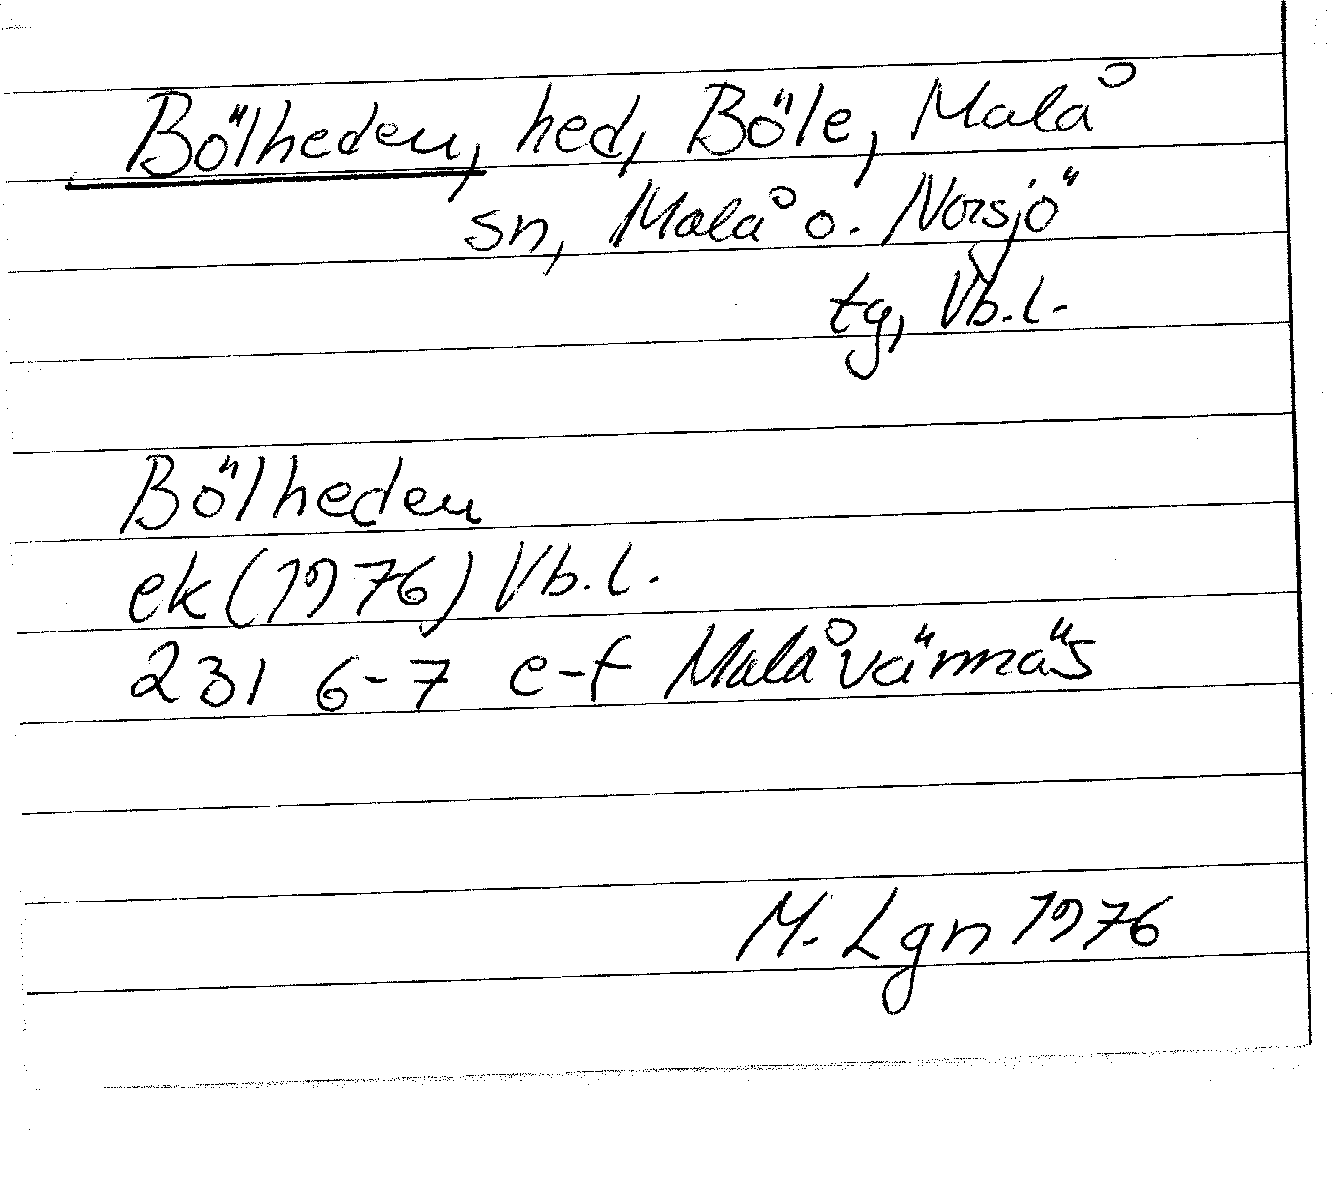 Bölheden, hed, Böle, Malå
sn, Malå o. Norsjö
tg, Vb.l.
Bölheden
ek (1976) Vb.l.
231 6-7 e-f Malåvännäs
M. Lgn 1976